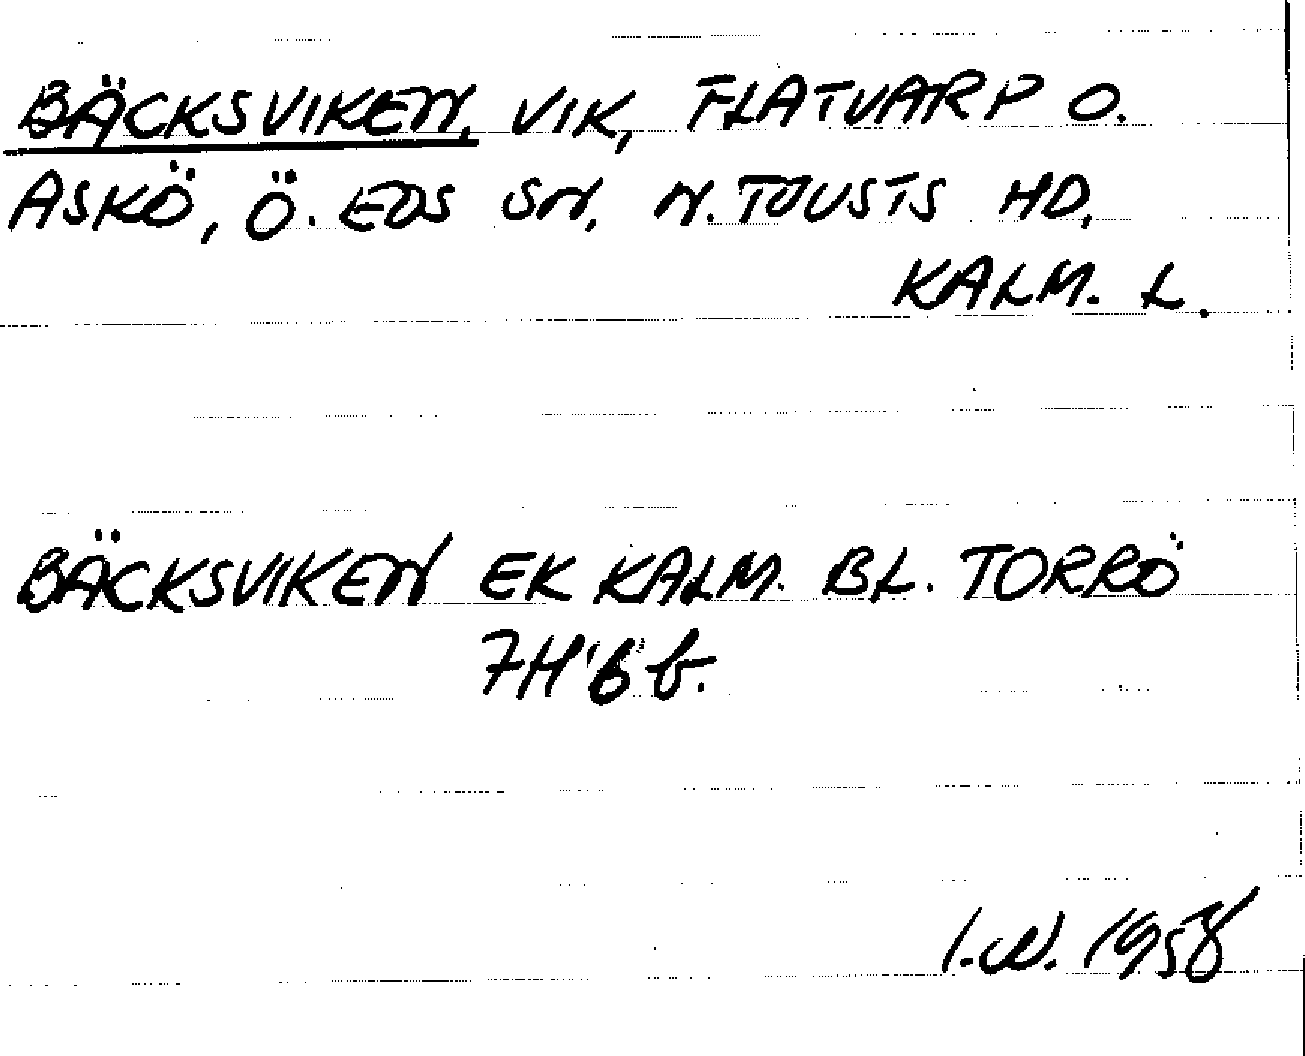 BÄCKSVIKEN, VIK, FLATVARP O.
ASKÖ, Ö. EDS SN, N. TJUSTS HD,
KALM. L.
BÄCKSVIKEN EK KALM. BL. TORRÖ
7H'6 b.
I.W. 1958